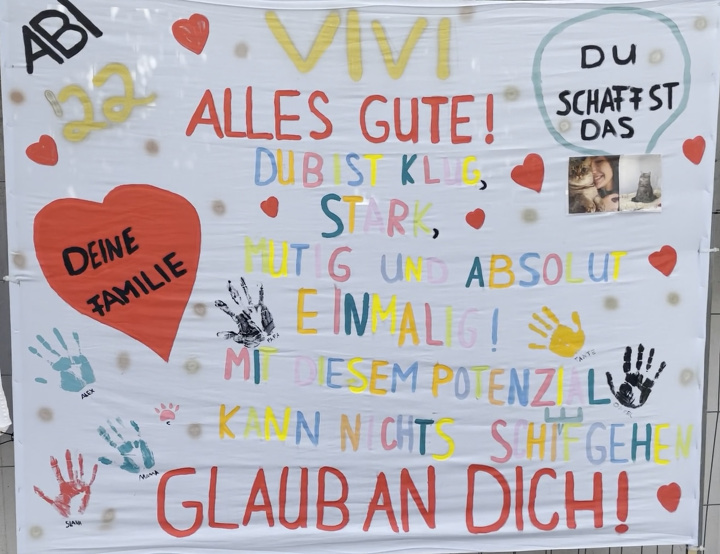 ABI
'22
VIVI
ALLES GUTE!
DU
SCHAFFST
DAS
DU BIST KLUG,
STARK,
MUTIG UND ABSOLUT
EINMALIG!
MIT DIESEM POTENZIAL
KANN NICHTS SCHIFGEHEN
E
GLAUB AN DICH!
DEINE
FAMILIE
ALEX
MAMA
PAPA
TANTE